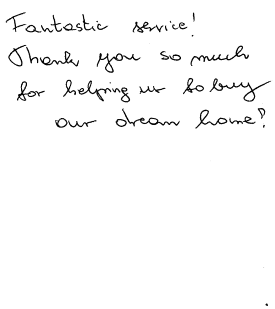 Fantastic service!
Thank you so much
for helping us to buy
our dream home!